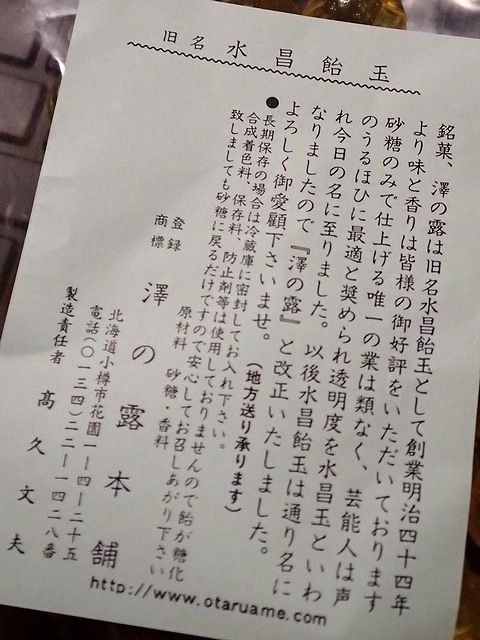 旧名 水昌飴玉
銘菓、澤の露は旧名水昌飴玉として創業明治四十四年
より味と香りは皆様の御好評をいただいております
砂糖のみで仕上げる唯一の業は類なく、芸能人は声
のうるほひに最適と奨められ透明度を水昌玉といわ
れ今日の名に至りました。以後水昌飴玉は通り名に
なりましたので『澤の露』と改正いたしました。
よろしく御愛顧下さいませ。(地方送り承ります)
●長期保存の場合は冷蔵庫に密封してお入れ下さい。
合成着色料、保存料、防止剤等は使用しておりませんので飴が糖化
致しましても砂糖に戻るだけですので安心してお召しあがり下さい
原材料 砂糖・香料
登録
商標
澤の露本舗
北海道小樽市花園一ー四ー二十五
電話(〇一三四)二二ー一四二八番
製造責任者 髙久文夫
http://www.otaruame.com